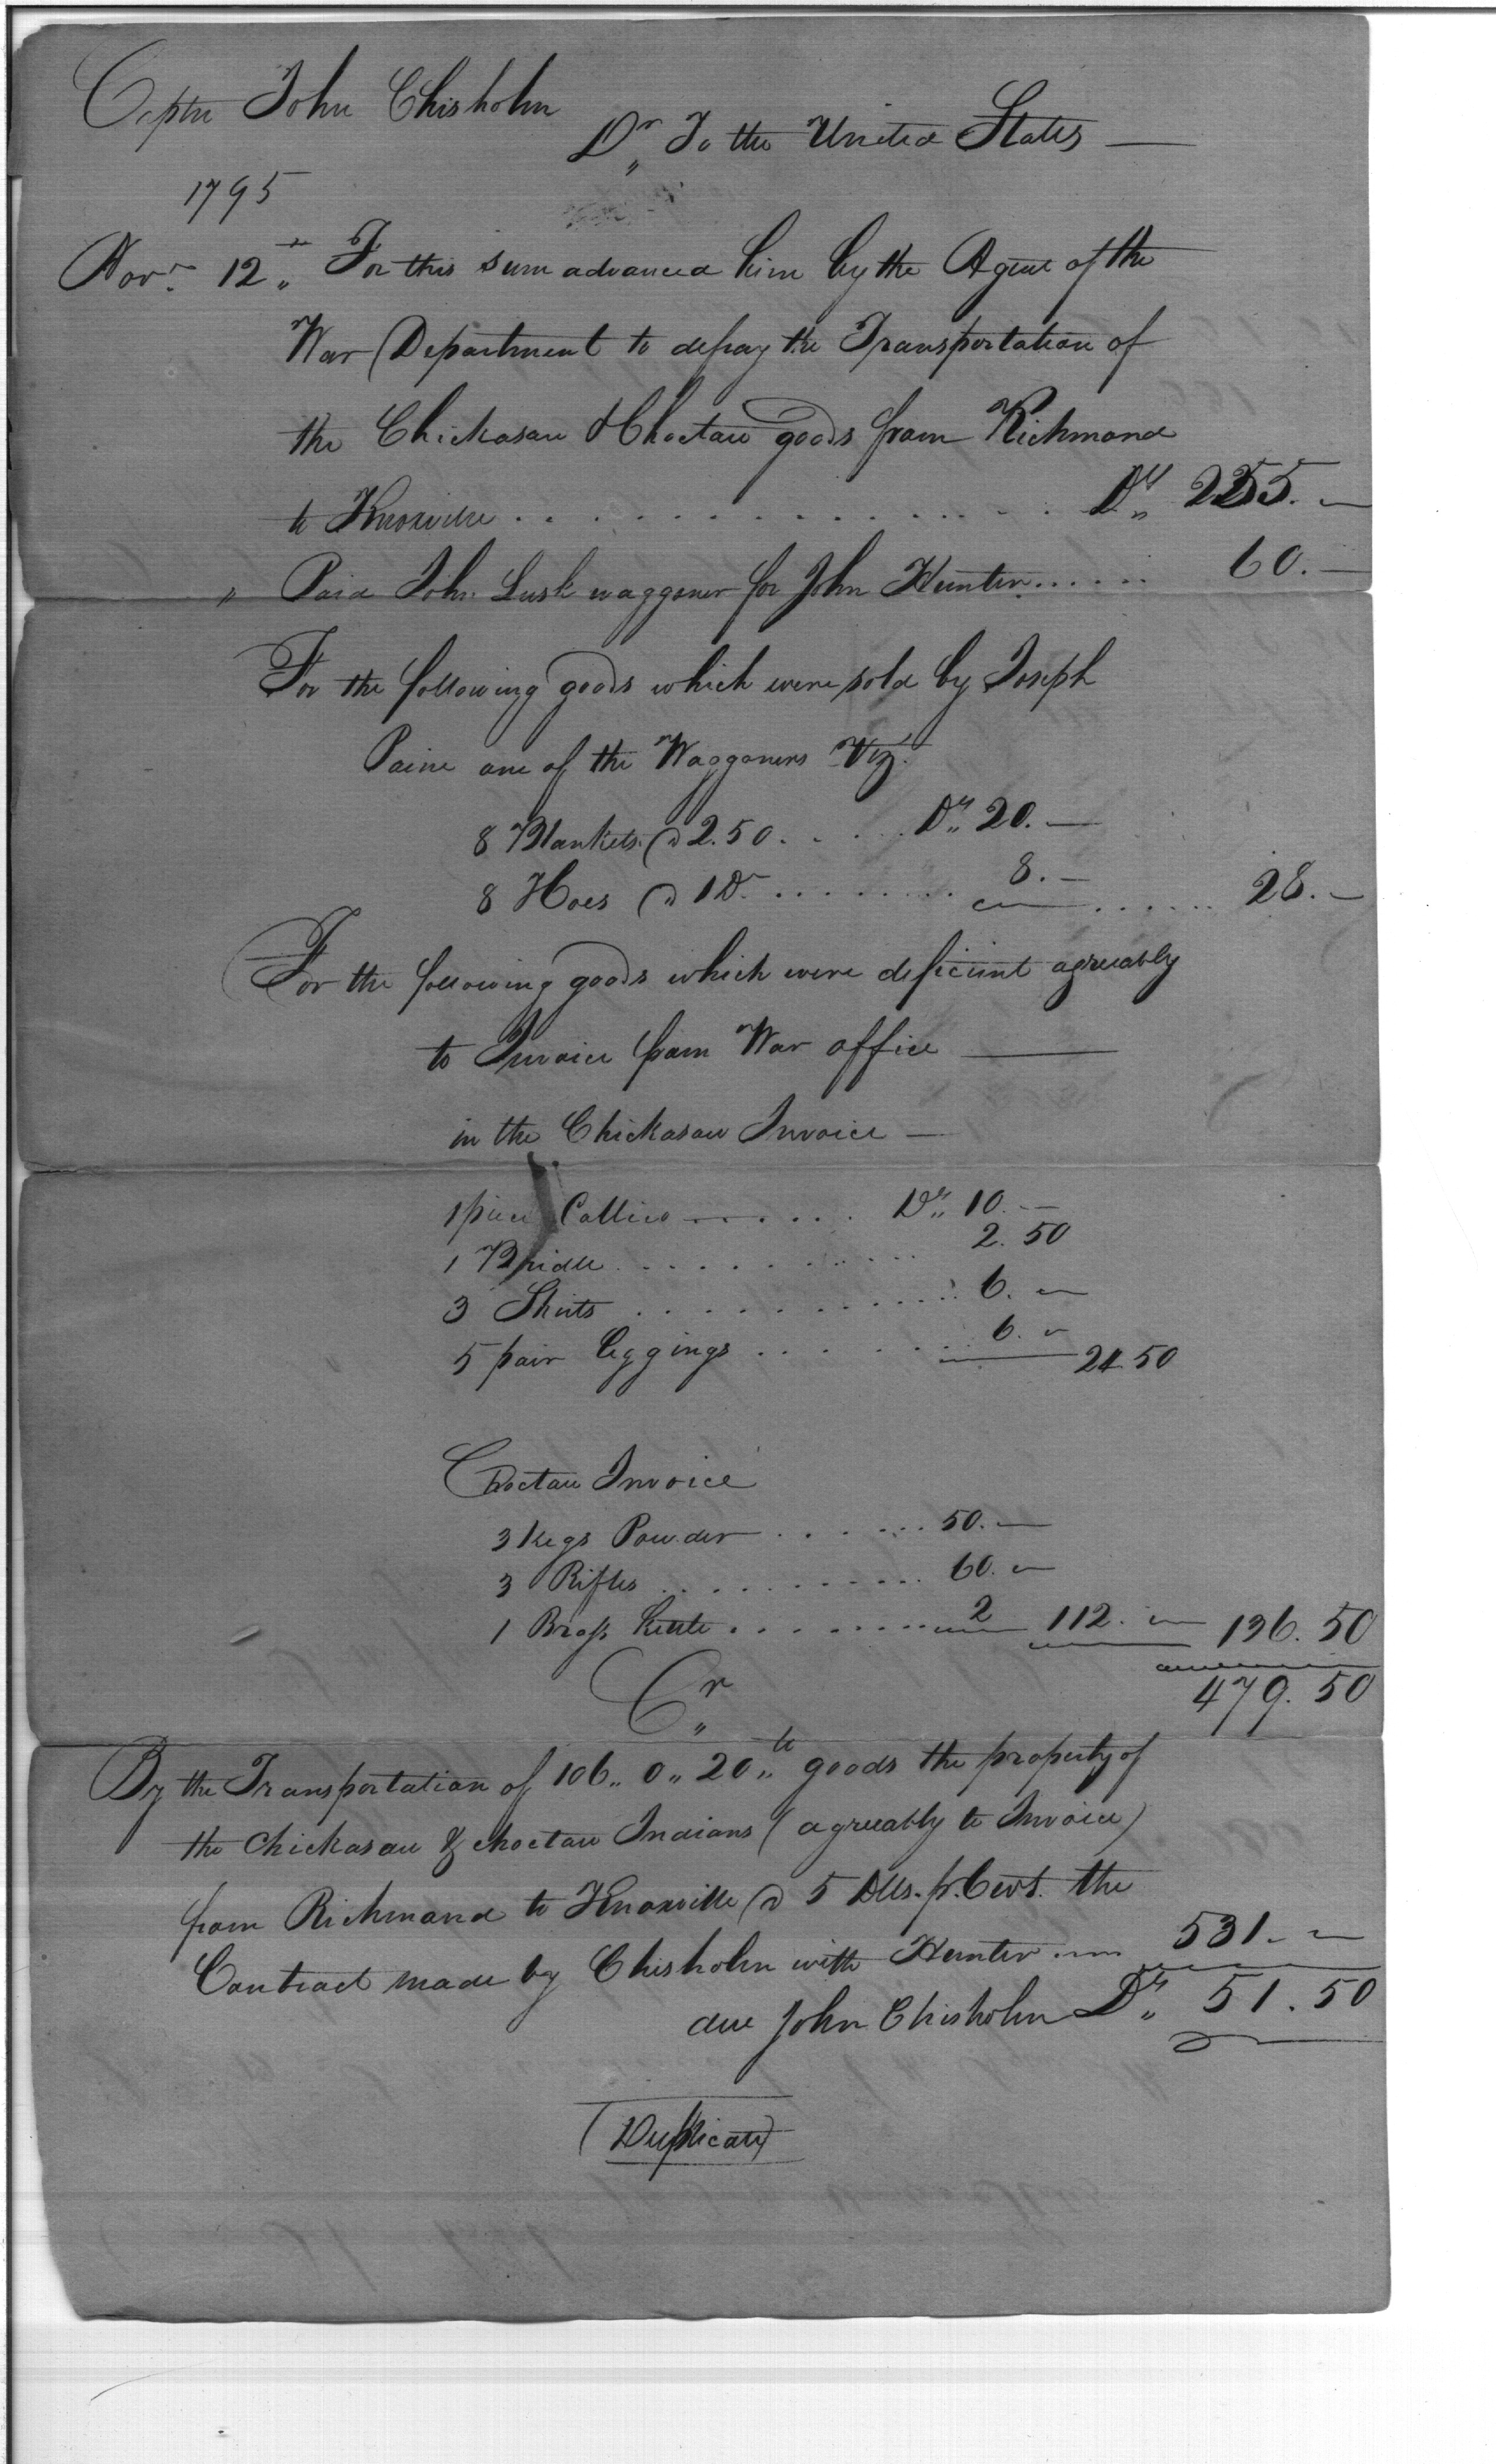 Captn John Chisholm
Dr To the United States —
1795
Novr 12th For this sum advanced him by the Agent of the
War Department to defray the Transportation of
the Chickasaw & Choctaw goods from Richmond
to Knoxville . . . . . . . . . . Drs 255. —
" Paid John Lusk waggoner for John Hunter . . . . . . 60. —
For the following goods which were sold by Joseph
Paine one of the Waggoners Viz.
8 Blankets @ 2.50 . . . . Drs 20. —
8 Hoes @ 1 Dr . . . . . . . . 8. — . . . . . . 28. —
For the following goods which were deficient agreeably
to Invoice from War office —
in the Chickasaw Invoice —
1 piece Callico . . . . . . Drs 10. —
1 Bridle . . . . . . . . . . 2. 50
3 Shirts . . . . . . . . . . . 6. —
5 pair leggings . . . . . . . 6. — 24.50
Choctaw Invoice
3 Kegs Powder . . . . . . . 50. —
3 Rifles . . . . . . . . . . . 60. —
1 Brass Kettle . . . . . . . . 2 112. — 136. 50
479. 50
Cr
By the Transportation of 106 .. 0 .. 20 lb goods the property of
the Chickasaw & Choctaw Indians (agreeably to Invoice)
from Richmond to Knoxville @ 5 Dlls. pr. Cwt. the
Contract made by Chisholm with Hunter . . . . 531. —
due John Chisholm Drs 51. 50
(Duplicate)